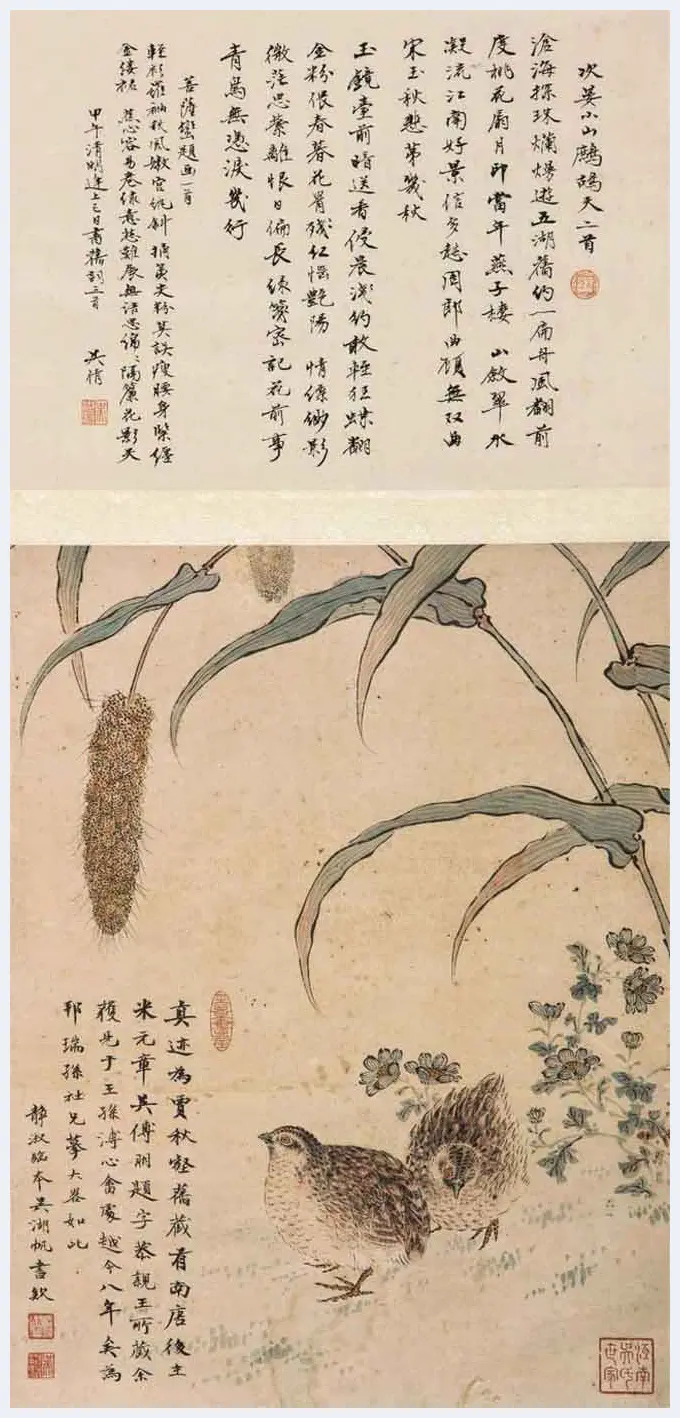 次晏小山鷓鴣天二首
滄海探珠爛熳遊五湖舊約一扁舟風翻前
度桃花扇月印當年燕子樓 山斂翠水
凝流江南好景信多愁周郎曲顧無双曲
宋玉秋悲第幾秋
玉鏡臺前暗送香侵晨淺約敢輕狂蝶翻
金粉偎春暮花骨殘紅惱艷陽 情縹緲影
微茫思縈離恨日偏長綠箋密記花前事
青鳥無憑淚幾行
菩薩蠻題画一首
輕衫羅袖秋風嫩宮紈斜撲黃衣粉莫誤瘦腰身
金縷裙 蕉心容易卷綠意愁難展無語思綿綿隔簾花影天
甲午清明逢上巳日書舊詞三首 吳倩
真迹為賈秋壑舊藏有南唐後主
米元章吳傅朋題字恭親王所藏余
獲見于王孫溥心畬處越今八年矣為
邦瑞孫社兄摹大畧如此
靜淑臨本吳湖帆書款
江南吳氏世家